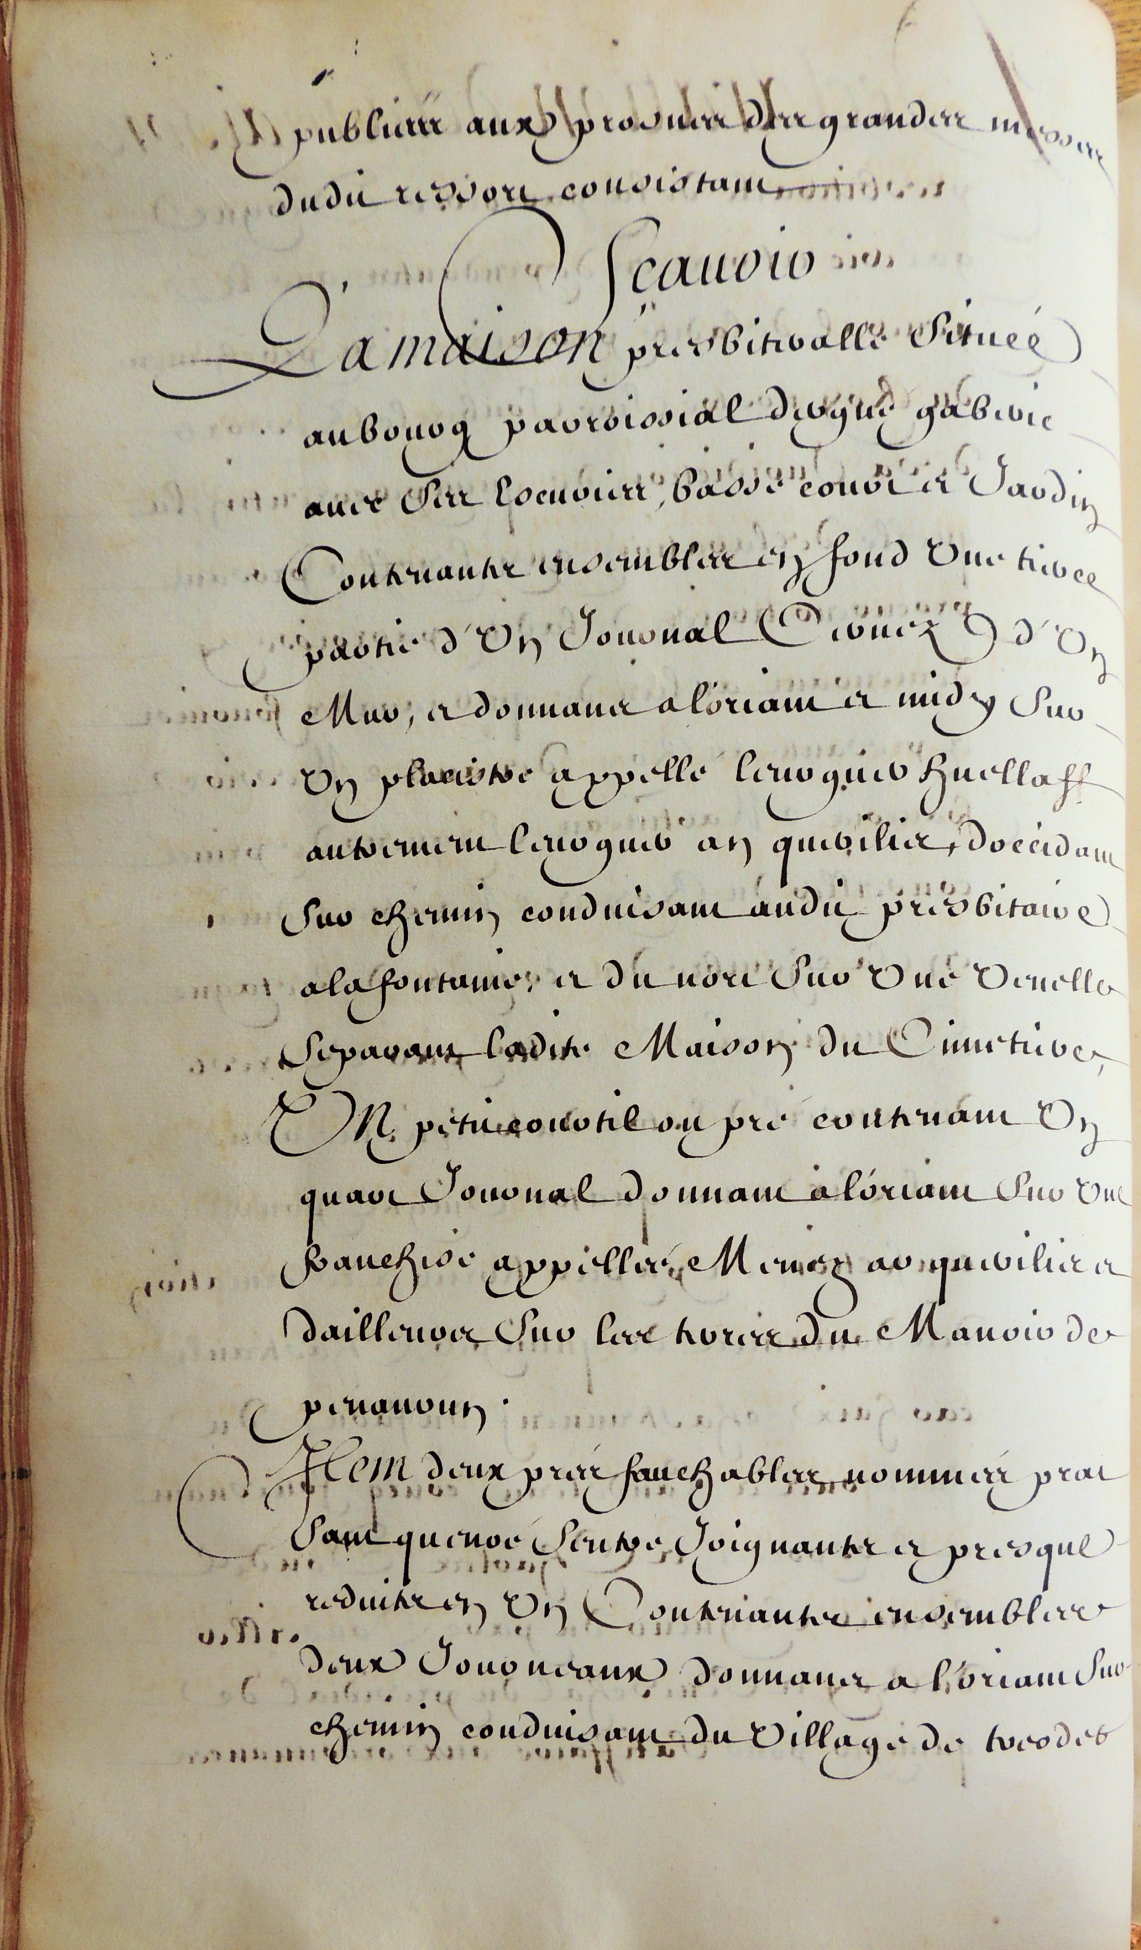 publiees aux prosnes des grandes messes
dudit ressort consistant
Scauoir
La maison presbiteralle Situeé
au bourg parroissial dergué gaberic
auec Ses Escuries, basse cour et Jardin
Contenantes ensembles en fond Vne tierce
partie d'Vn Journal Cernez d'Vn
Mur, et donnantes a l'oriant et midy Sur
Vn placistre appellé leurguer huellaff
autrement leurguer an quevilier, d'occidant
Sur chemin conduisant audit presbitaire
a la fontaine, et du nort Sur Vne Venelle
Separant ladite Maison du Cimetiere,
VN petit courtil ou pré contenant Vn
quart Journal donnant a l'oriant Sur Vne
franchise appellée Menez ar quevilier et
dailleurs Sur les terres du Manoir de
penanrun.
Item deux prés fauchables nommés prat
Sant quenoé Sentre Joignantes et presque
reduites en Vn Contenantes ensembles
deux Journeaux donnantes a l'oriant Sur
chemin conduisant du Village de